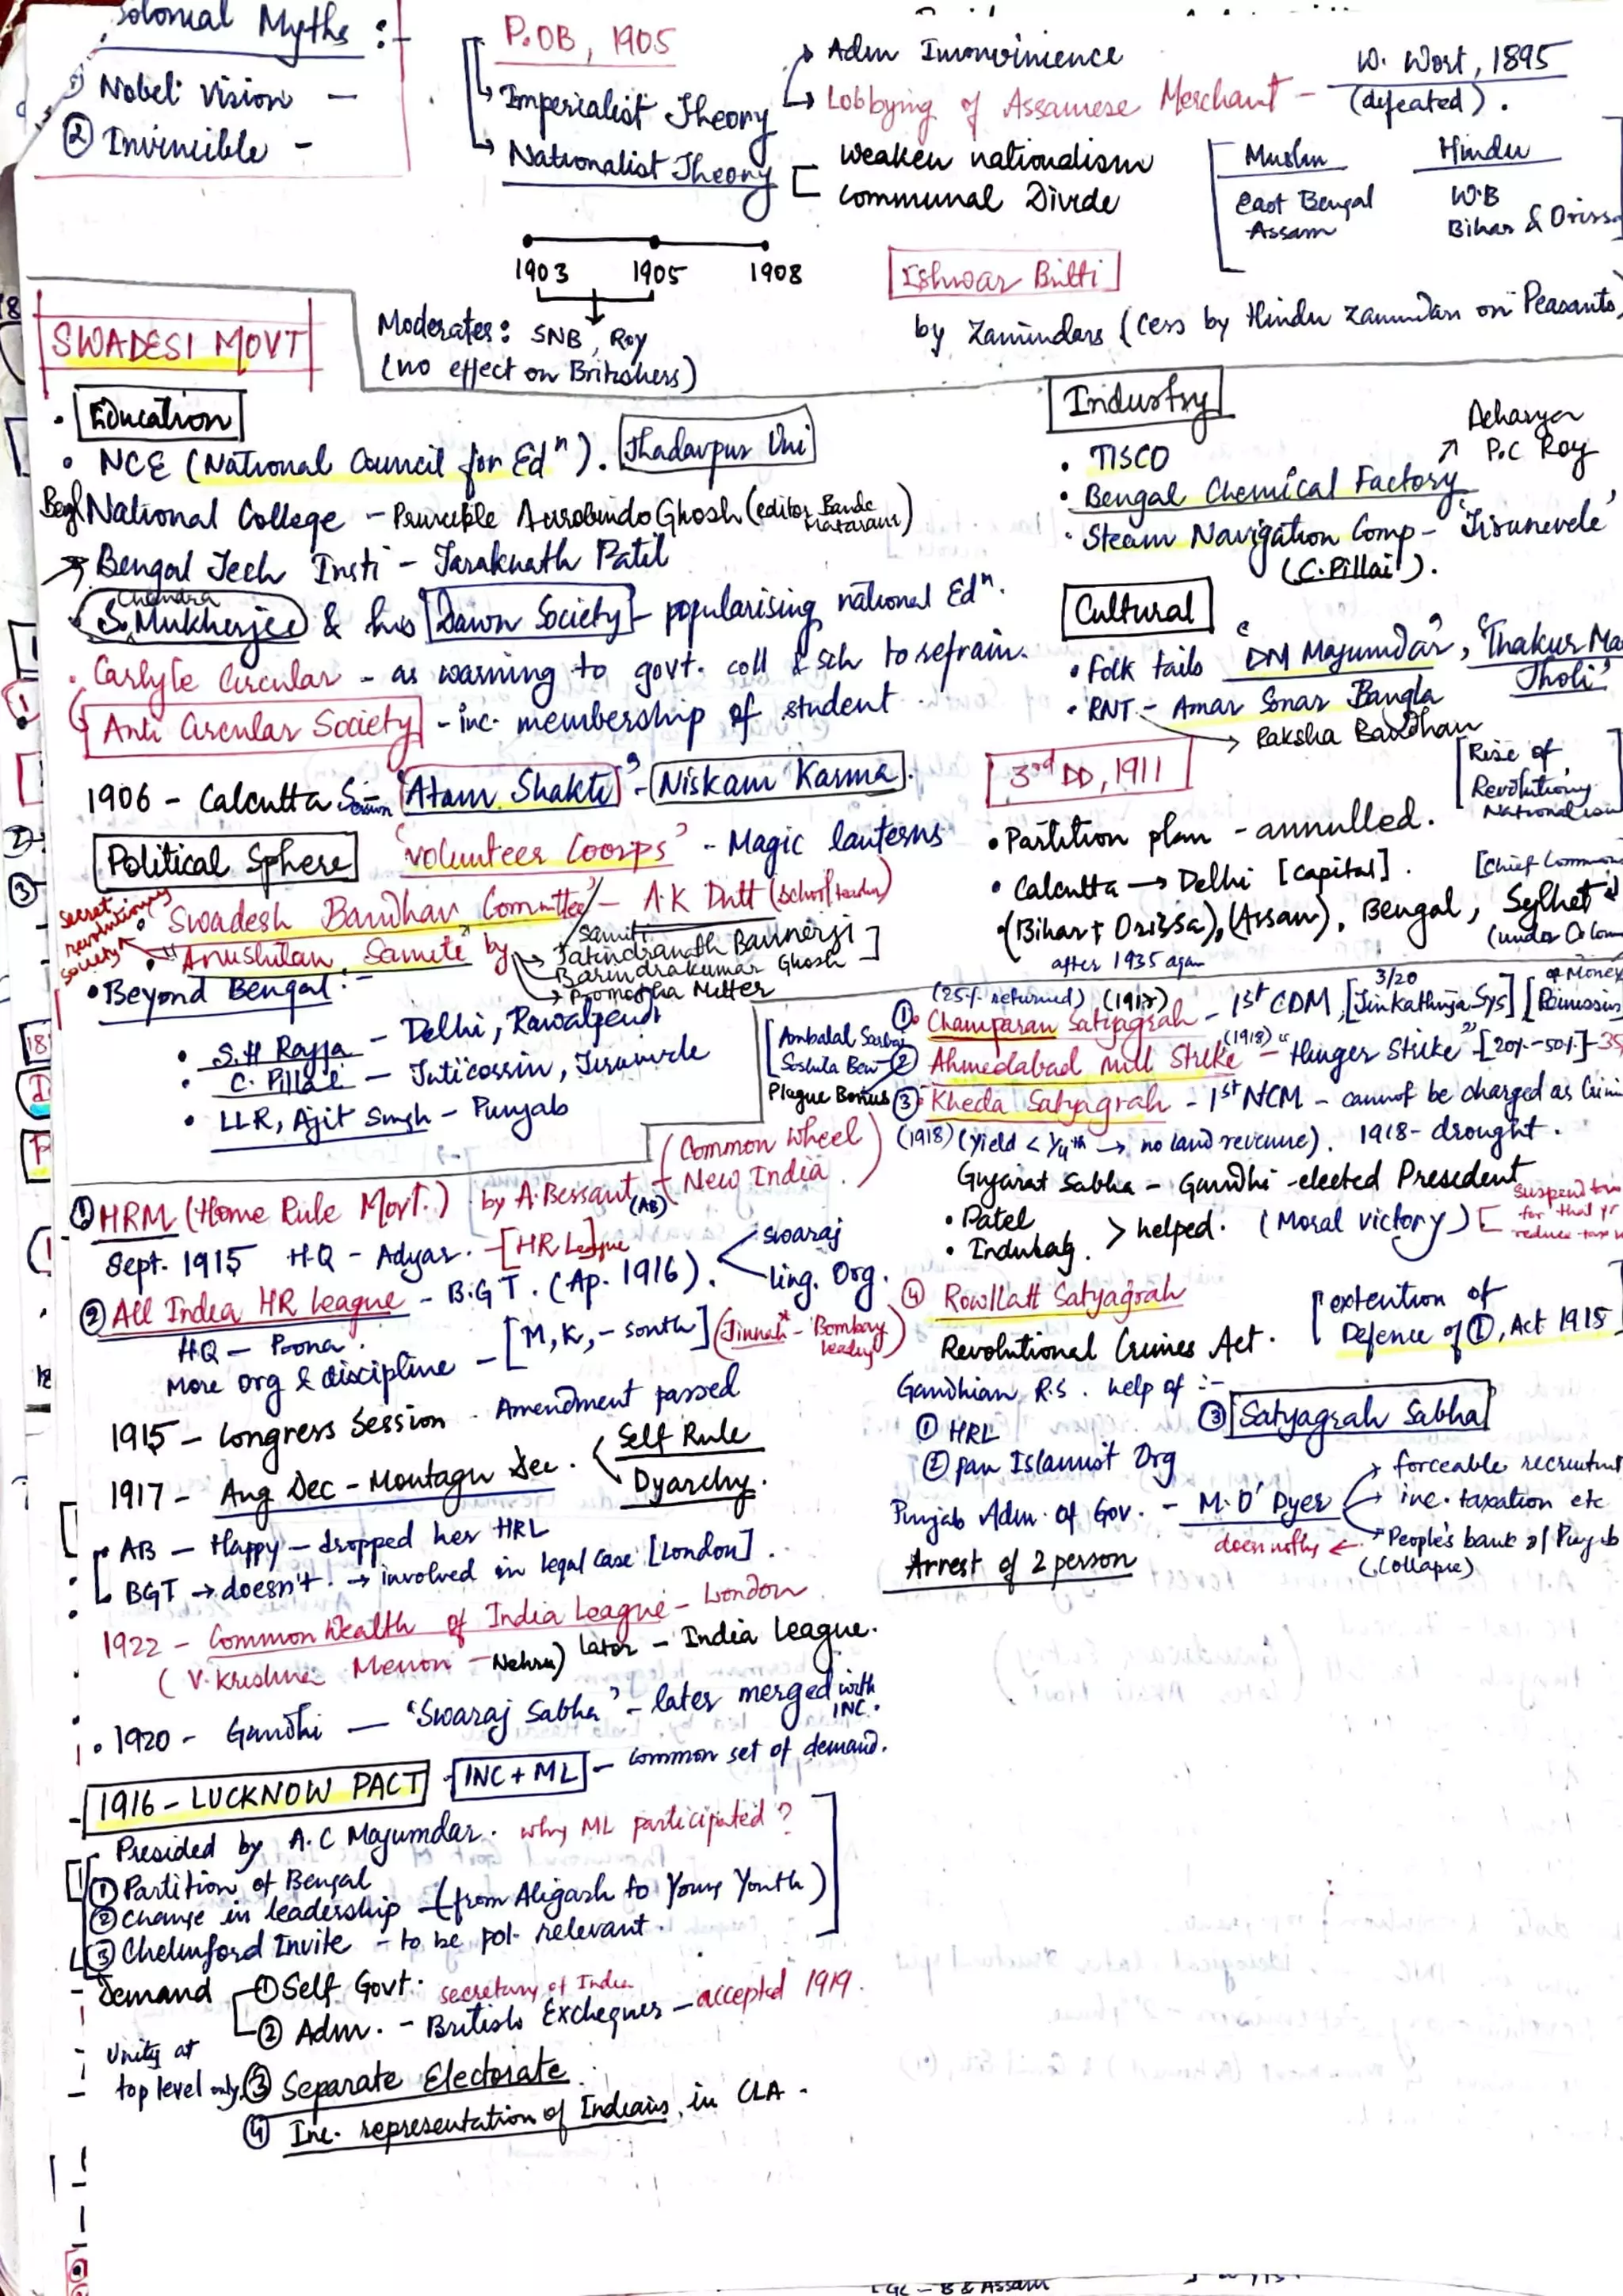 Colonial Myths :-
① Nobel vision -
② Invincible -
P.OB, 1905
Imperialist Theory
Adm Inconvinience
Lobbying of Assamese Merchant - W. Wort, 1895
(defeated).
Nationalist Theory
Weaken nationalism
Communal Divide
Muslim Hindu
East Bengal W.B
Assam Bihar & Orissa
1903 1905 1908
Ishwar Britti
by Zamindars (Cess by Hindu Zamindars on Peasants)
SWADESI MOVT
Moderates: SNB, Roy
(no effect on Britishers)
Education
• NCE (National Council for Edⁿ). Jhadavpur Uni
Begl National College - Princible Aurobindo Ghosh (editor Bande Mataram)
→ Bengal Tech Insti - Taraknath Patil
Chandra
• S. Mukherjee & his Dawn Society - popularising national Edⁿ.
• Carlyle Circular - as warning to govt. coll & sch to refrain.
Anti Circular Society - inc. membership of student
1906 - Calcutta Session - 'Atam Shakti' - Niskam Karma.
Political Sphere 'Volunteer Coorps' - Magic lanterns
• Swadesh Bandhav Committee/ - A.K Dutt (school teacher)
samiti
secret revolutionary society
• "Anushilan Samite" by
→ Jatindranath Bannerji
Barindrakumar Ghosh
→ Promotha Mitter
• Beyond Bengal:-
• S.H Rajja - Delhi, Rawalpendi
• C. Pillai - Tuticossin, Tirunivele
• LLR, Ajit Singh - Punjab
Industry
• TISCO
Acharya P.C Roy
• Bengal Chemical Factory
• Steam Navigation Comp - 'Tirunevele'
(C. Pillai).
Cultural
• Folk tails 'DM Majumdar', 'Thakur Ma
Jholi'
• RNT - Amar Sonar Bangla
→ Raksha Bandhan
3rd DD, 1911
[Rise of Revolutiony Nationalism
• Partition plan - annulled.
• Calcutta → Delhi [capital].
[Chief Commom
• (Bihar + Orissa), (Assam), Bengal, Sylhet
after 1935 again
(under Colom
(25% returned) (1917)
① Champaran Satyagrah - 1st CDM, [Tinkathiya Sys]
3/20
Ambalal Sarbai
Soshila Ben
② Ahmedabad mill Strike (1918) - "Hunger Strike" - [20% - 50%] - 35
Plague Bonus
③ Kheda Satyagrah - 1st NCM - cannot be charged as Crimi
(1918) (yield < 1/4th → no land revenue). 1918 - drought.
Gujarat Sabha - Gandhi - elected President
• Patel
• Indulag. > helped. (Moral victory)
suspend tax
for that yr
reduce tax
④ Rowllatt Satyagrah
Revolutional Crimes Act.
[extention of
Defence of Ⓘ, Act 1915
Gandhian R.S. help of :-
① HRL
② Pan Islamist Org
③ Satyagrah Sabha
Punjab Adm. of Gov. - M. O' Dyer
→ forceable recruitmt
→ inc. taxation etc
→ People's bank of Punjab
(Collapse)
does nothg ←
Arrest of 2 person
① HRM (Home Rule Movt.) by A. Bessant (AB)
(Common Wheel
New India)
Sept. 1915 H.Q - Adyar. - [HR League
② All India HR League - B.G T. (Ap. 1916).
swaraj
ling. Org.
HQ - Poona.
More org & discipline - [M, K, - south] (Jinnah* - Bombay leading)
1915 - Congress Session - Amendment passed
1917 - Aug Dec - Montagu Dec.
Self Rule
Dyarchy.
AB - Happy - dropped her HRL
BGT → doesn't. → involved in legal case [London].
1922 - Common Wealth of India League - London
(V. Krishna Menon - Nehru) later - India League.
• 1920 - Gandhi - 'Swaraj Sabha' - later merged with INC.
- 1916 - LUCKNOW PACT - INC + ML - common set of demand.
Presided by A.C Majumdar. why ML participated?
① Partition of Bengal
② Change in leadership - (from Aligarh to Young Youth)
③ Chelmford Invite - to be pol. relevant.
- Demand
① Self Govt.
secretary of India
② Adm. - British Exchequer - accepted 1919.
- Unity at
top level only.
③ Separate Electorate.
④ Inc. representation of Indians, in CLA.
LGC - B & Assam